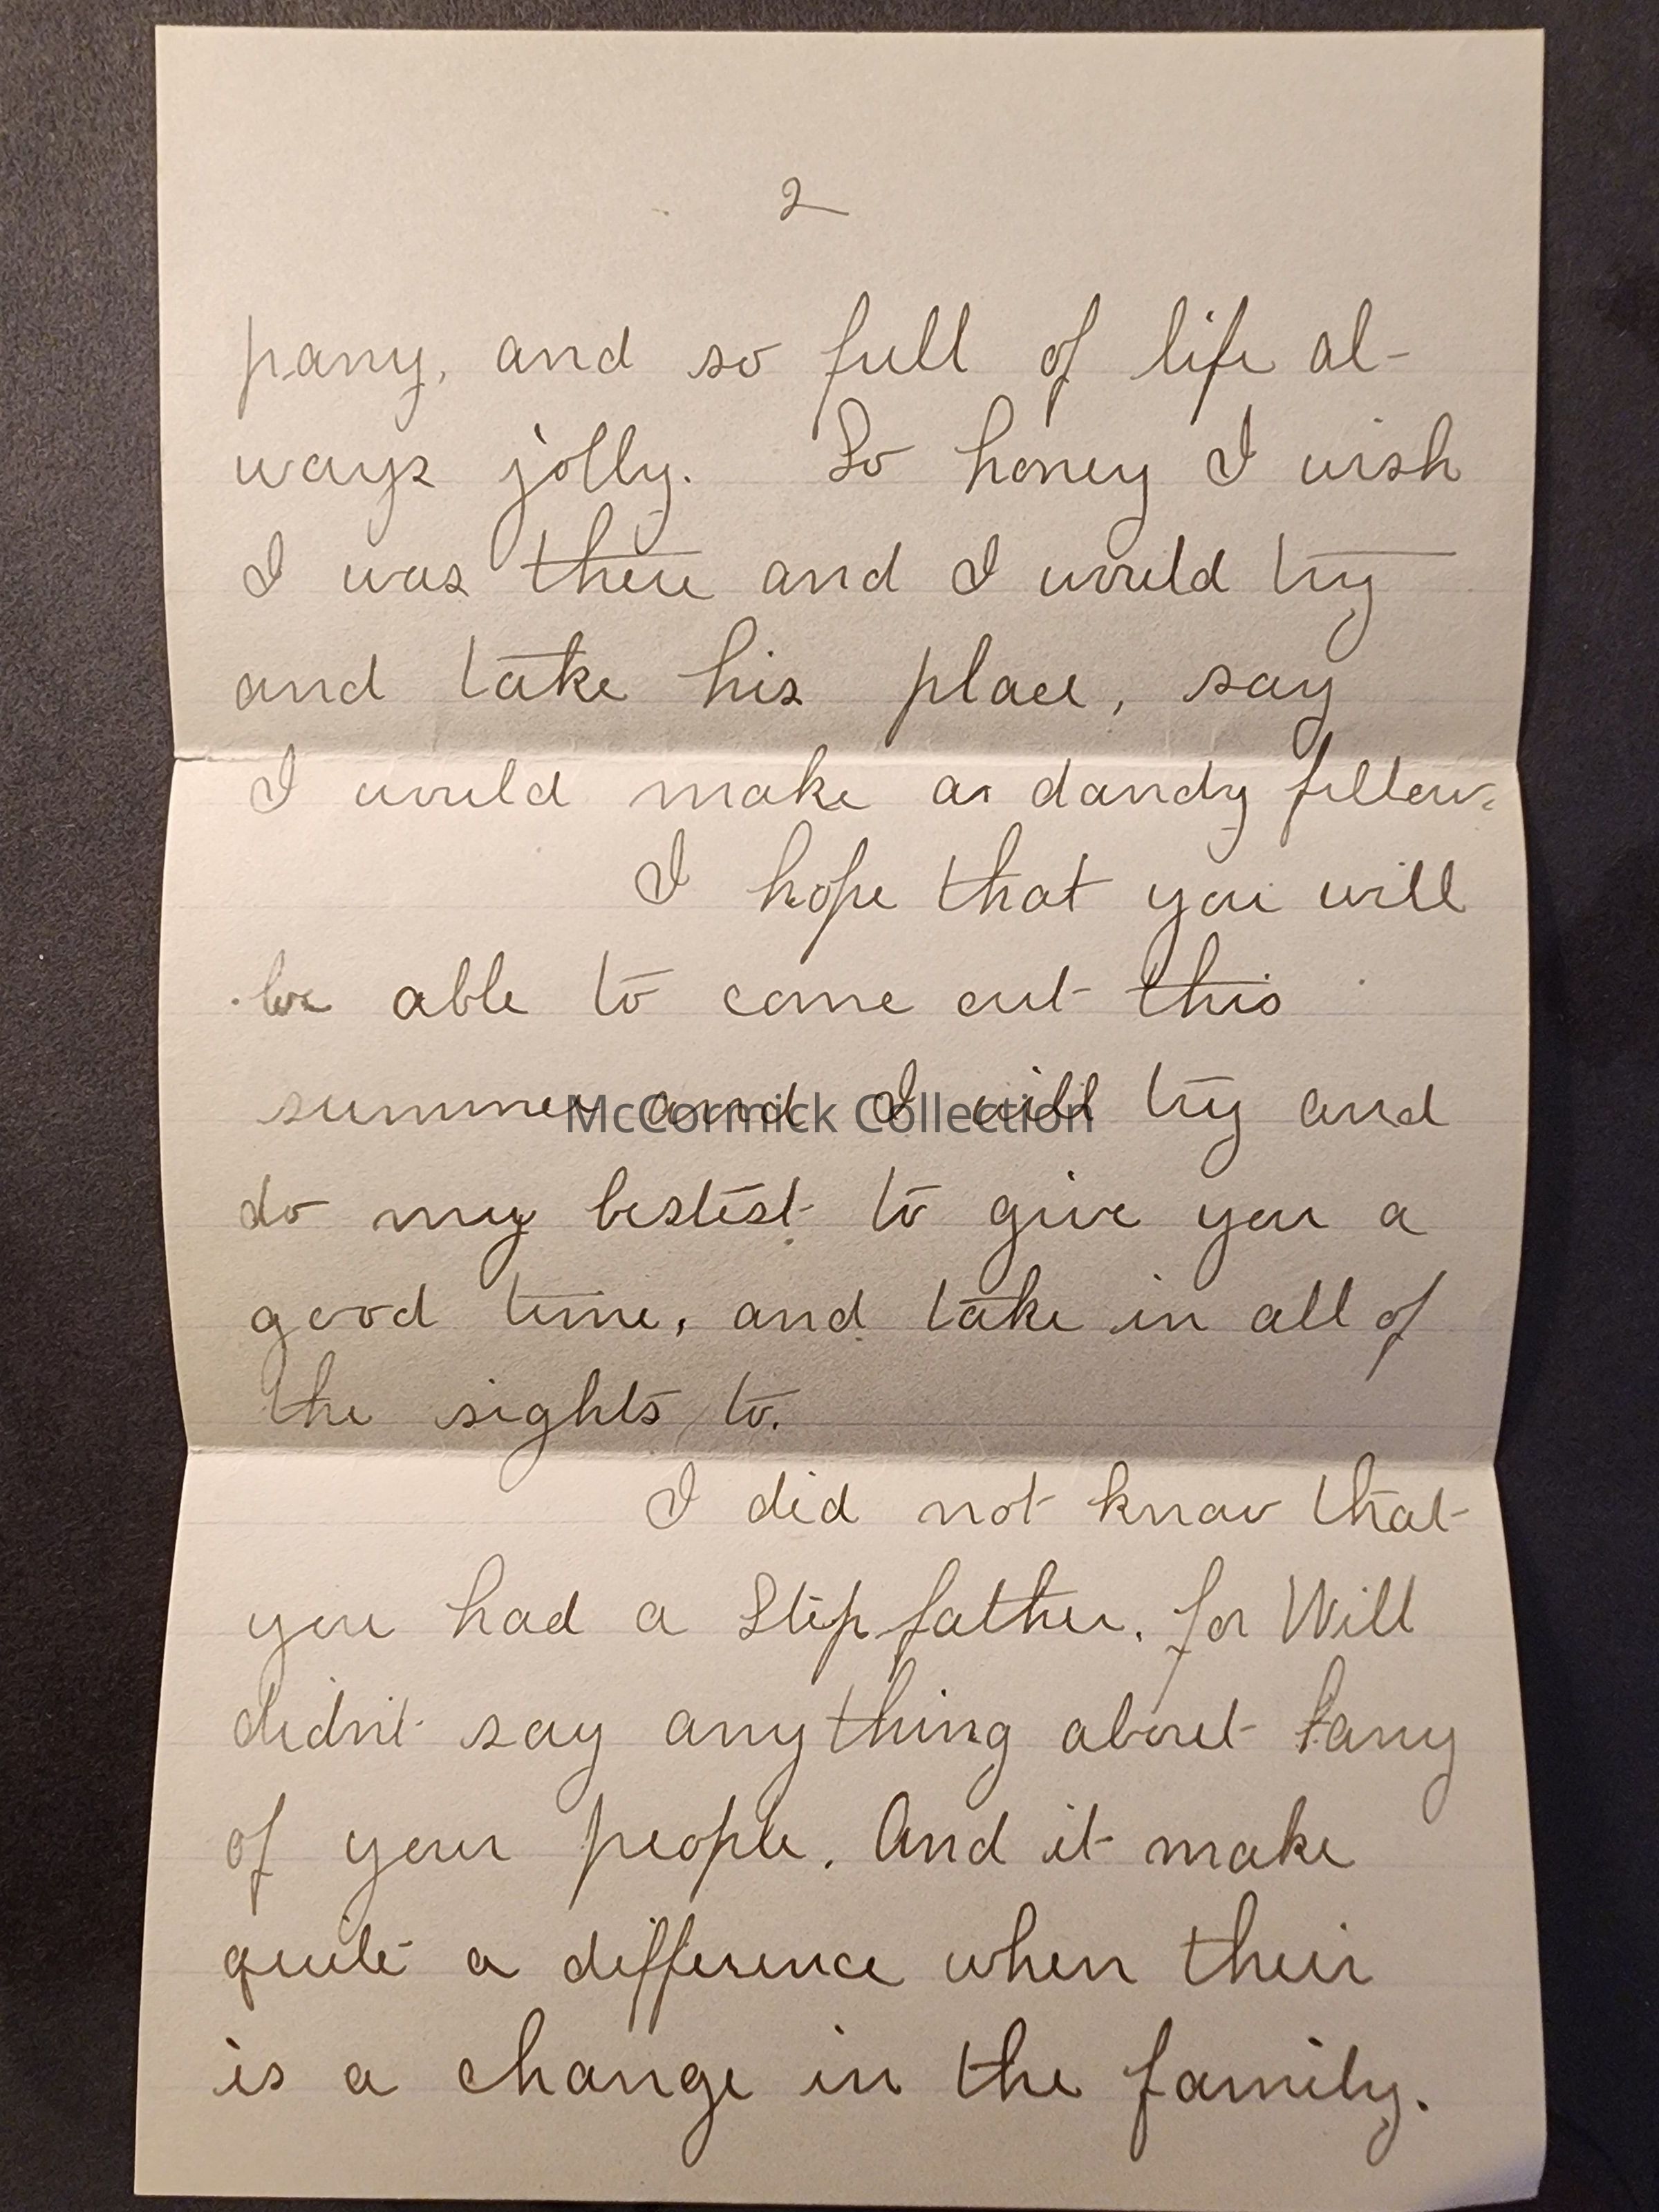 2
pany, and so full of life al-
ways jolly. So honey I wish
I was there and I would try
and take his place, say
I would make a dandy fellow.
I hope that you will
be able to come out this
summer and I will try and
McCormick Collection
do my bestest to give you a
good time, and take in all of
the sights to.
I did not know that
you had a Step father, for Will
didn't say anything about any
of your people. And it make
quite a difference when their
is a change in the family.